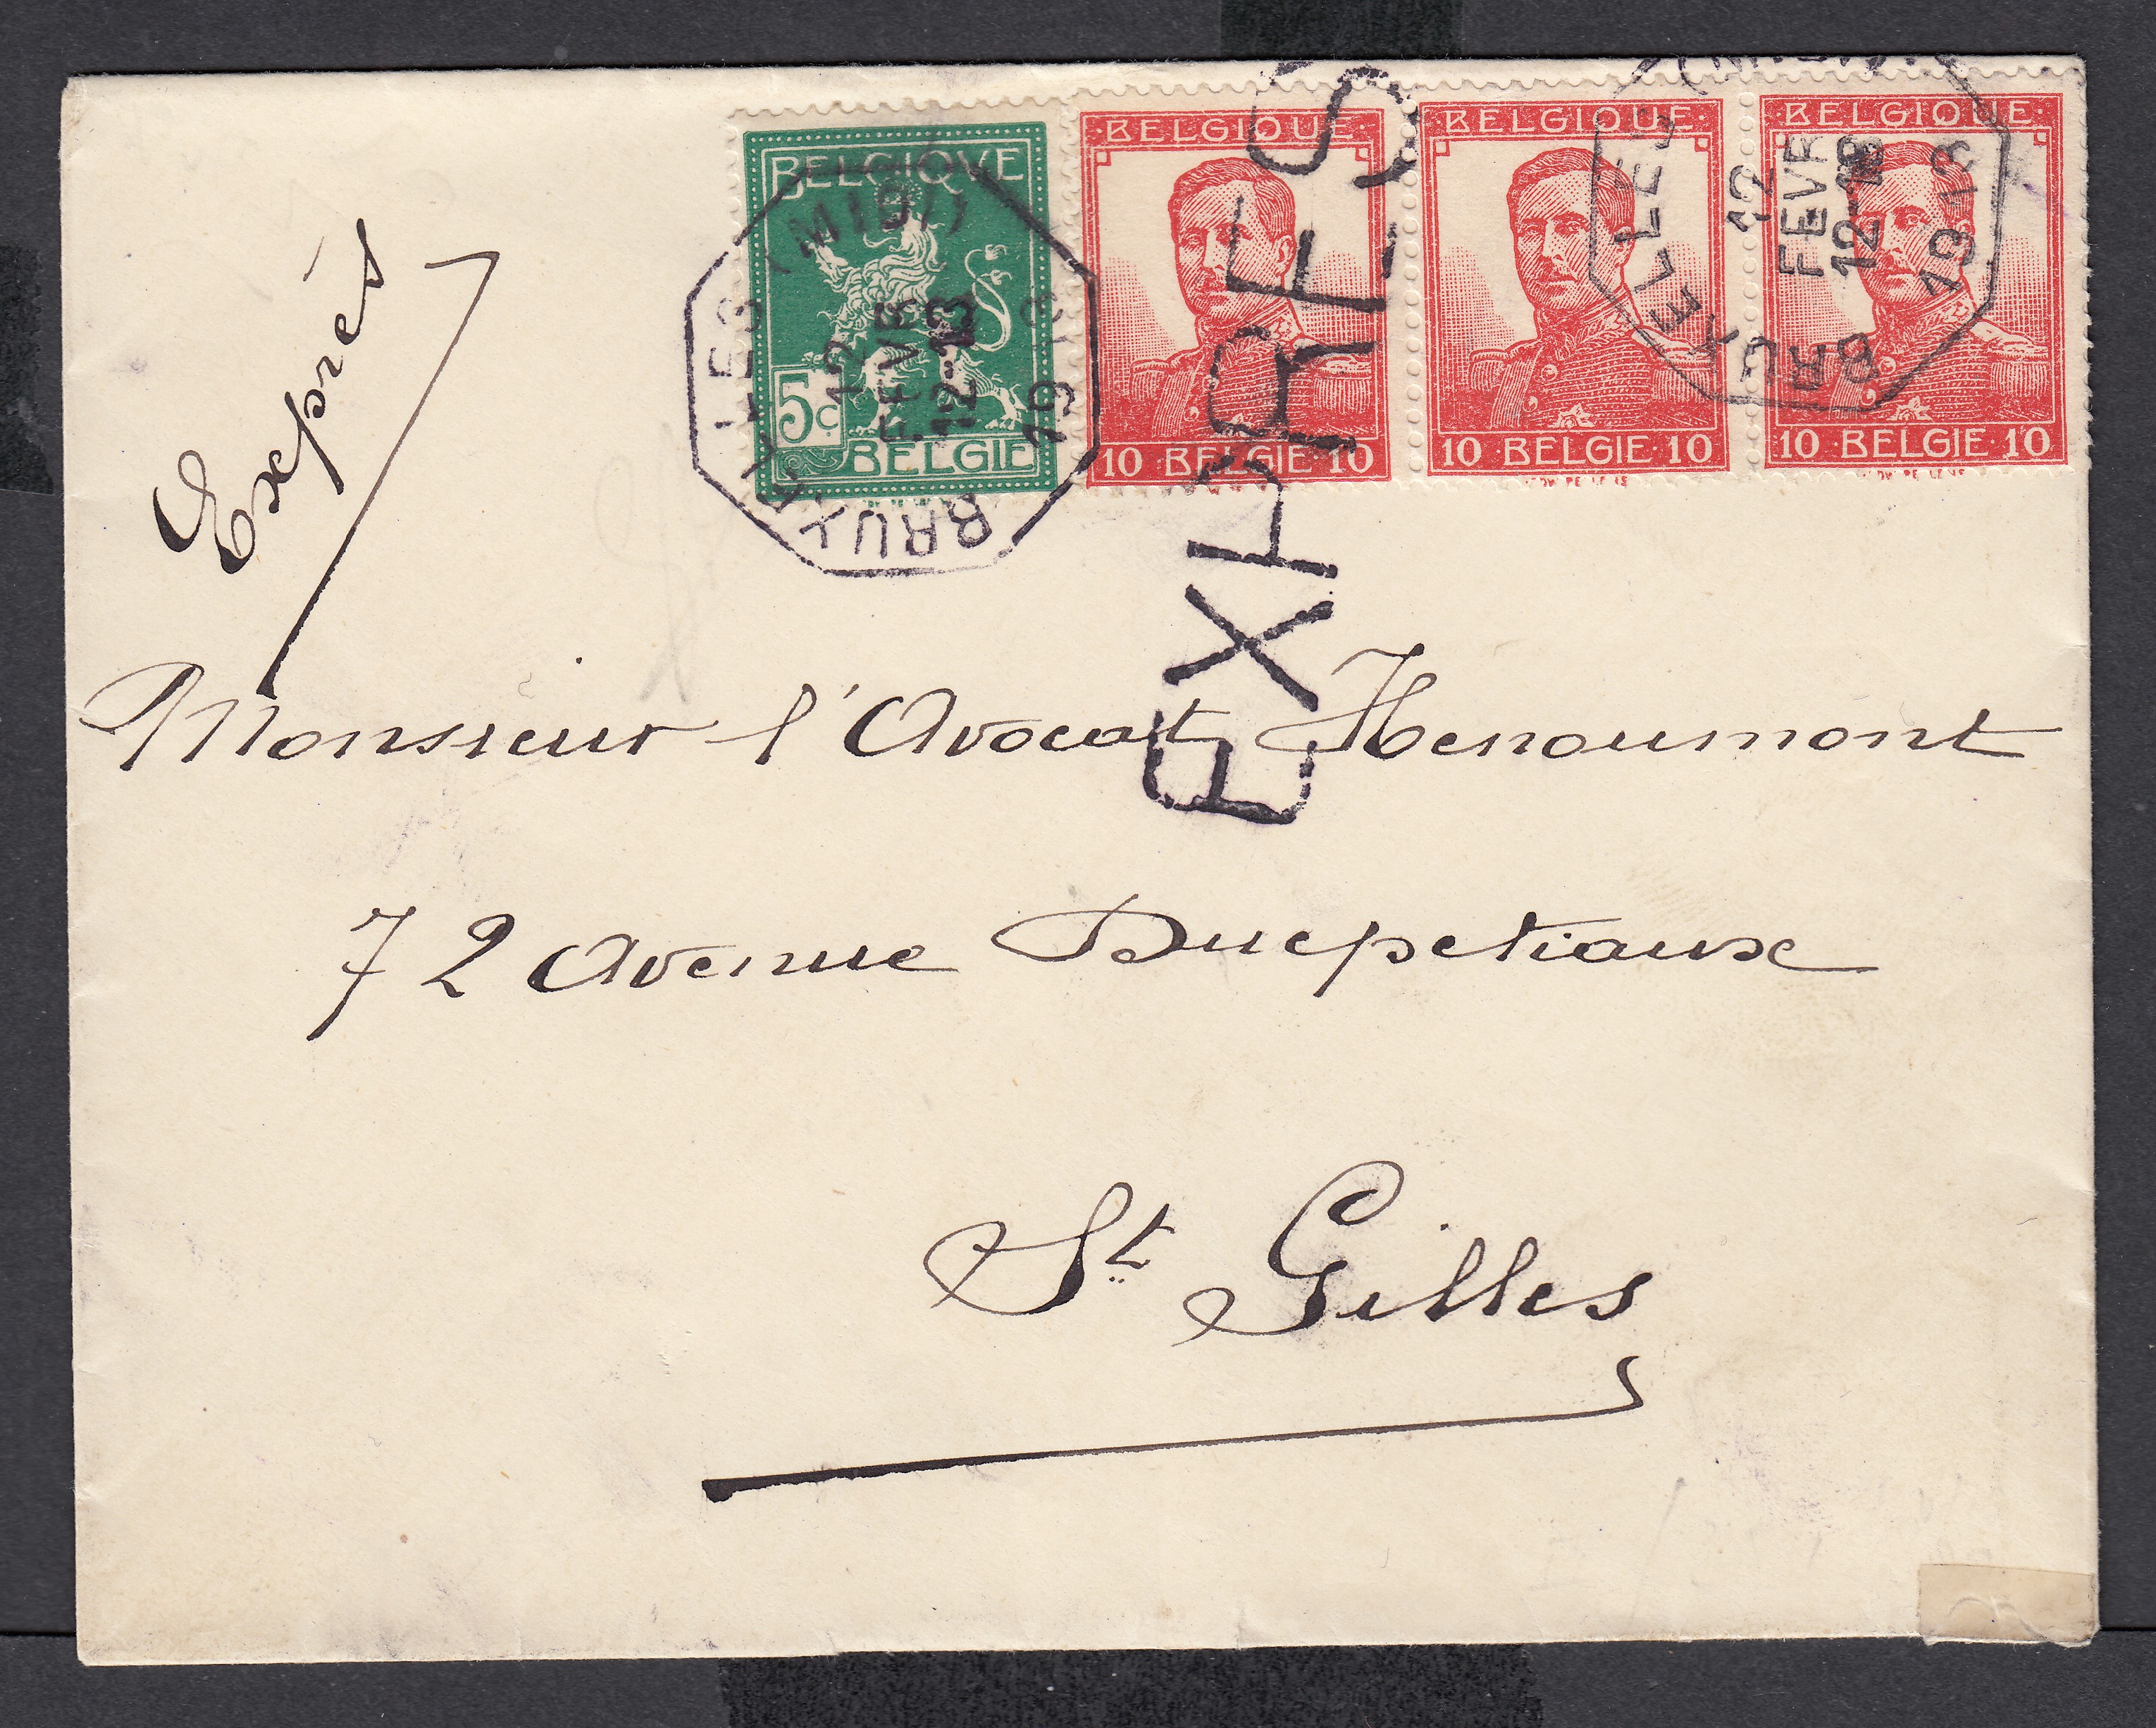 Exprès
BELGIQVE
5c
BELGIE
BELGIQUE
10 BELGIE 10
BELGIQUE
10 BELGIE 10
BELGIQUE
10 BELGIE 10
BRUXELLES (MIDI)
12
FEVR
12-13
1913
BRUXELLES (MIDI)
12
FEVR
12-13
1913
EXPRES
Monsieur l'Avocat Henoumont
72 Avenue Ducpetiaux
St Gilles